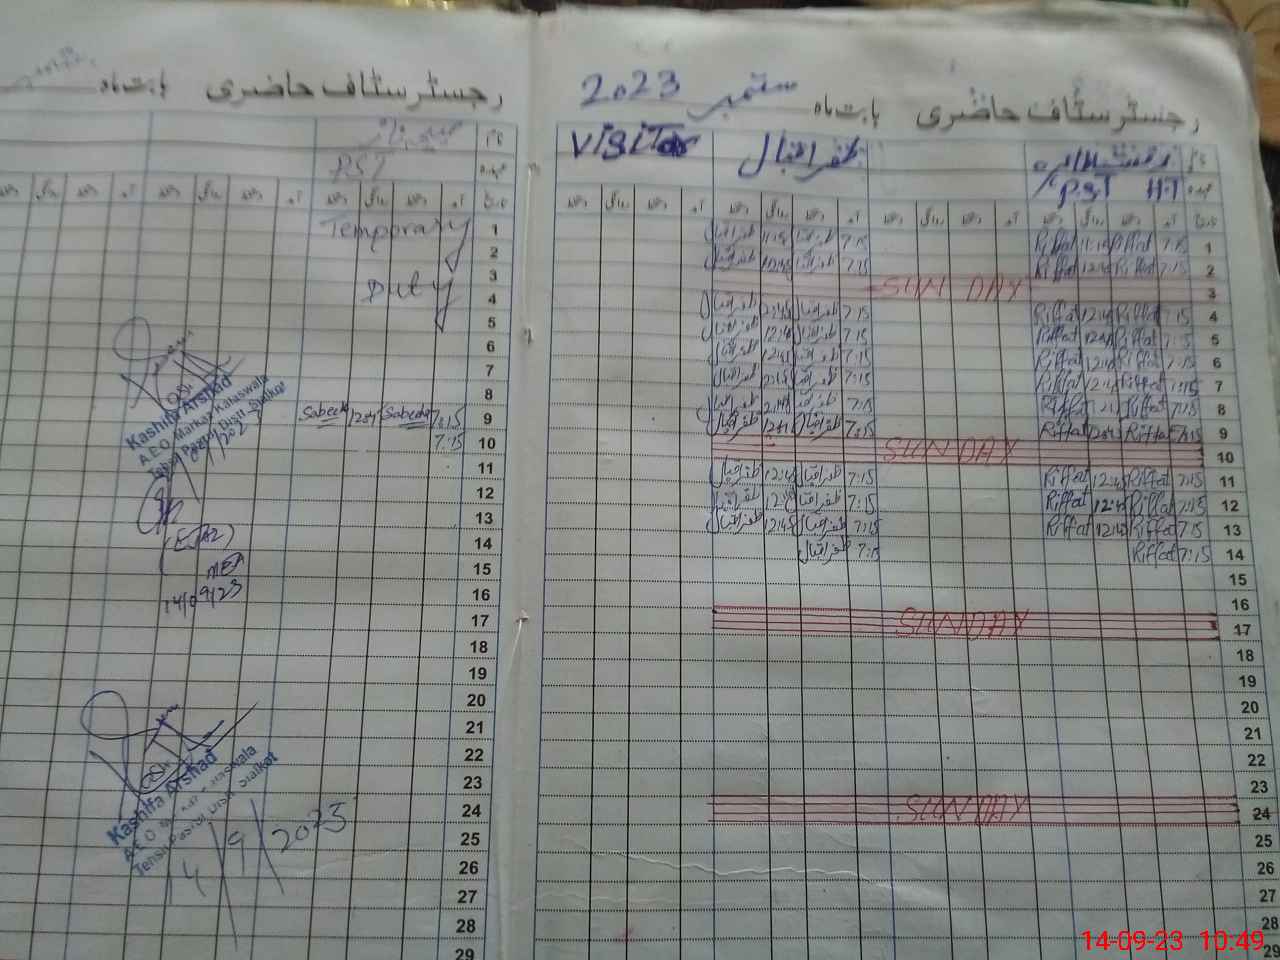 رجسٹر سٹاف حاضری بابت ماہ ستمبر 2023
نام ظفر اقبال Visitor
عہدہ P.S.T H.T
تاریخ آمد دستخط روانگی دستخط آمد دستخط روانگی دستخط آمد دستخط روانگی دستخط
1 7:15 Riffat 11:15 Riffat 7:15 ظفر اقبال 11:15 ظفر اقبال
2 7:15 Riffat 12:45 Riffat 7:15 ظفر اقبال ظفر اقبال
3 SUNDAY
4 7:15 Riffat 12:45 Riffat 7:15 ظفر اقبال 12:45 ظفر اقبال
5 7:15 Riffat 12:45 Riffat 7:15 ظفر اقبال 12:45 ظفر اقبال
6 7:15 Riffat 12:45 Riffat 7:15 ظفر اقبال 12:45 ظفر اقبال
7 7:15 Riffat 12:45 Riffat 7:15 ظفر اقبال ظفر اقبال
8 7:15 Riffat Riffat 7:15 ظفر اقبال ظفر اقبال
9 7:15 Riffat 12:45 Riffat 7:15 ظفر اقبال 12:45 ظفر اقبال
10 SUNDAY
11 7:15 Riffat 12:45 Riffat 7:15 ظفر اقبال 12:45 ظفر اقبال
12 7:15 Riffat 12:45 Riffat 7:15 ظفر اقبال 12:45 ظفر اقبال
13 7:15 Riffat 12:45 Riffat 7:15 ظفر اقبال 12:45 ظفر اقبال
14 7:15 Riffat 7:15 ظفر اقبال
15
16
17 SUNDAY
18
19
20
21
22
23
24 SUNDAY
25
26
27
28
29
رجسٹر سٹاف حاضری بابت ماہ
نام
عہدہ PST
تاریخ آمد دستخط روانگی دستخط آمد دستخط روانگی دستخط
1 Temporary
2
3
4 Duty
5
6
7
8
9 7:15 Sabeeha 12:45 Sabeeha
10 7:15
11
12
13
14
15
16
17
18
19
20
21
22
23
24
25
26
27
28
29
Kashifa Arshad
A.E.O Markaz Kalaswala
Tehsil Pasrur Distt Sialkot
MEA
14/09/23
Kashifa Arshad
A.E.O Markaz Kalaswala
Tehsil Pasrur Distt Sialkot
14/9/2023
14-09-23 10:49